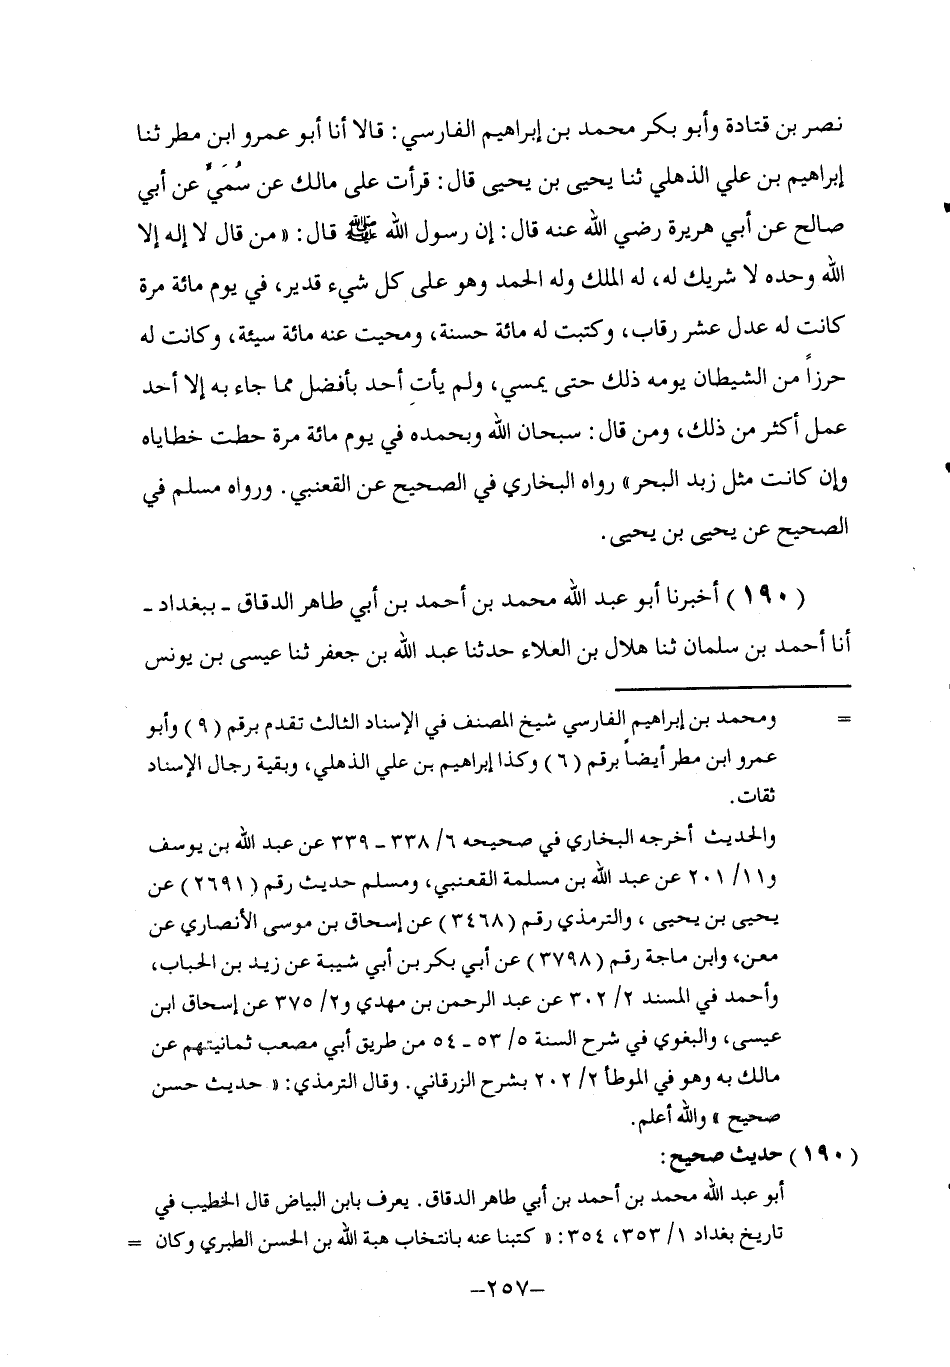 نصر بن قتادة وأبو بكر محمد بن إبراهيم الفارسي: قالا أنا أبو عمرو ابن مطر ثنا
إبراهيم بن علي الذهلي ثنا يحيى بن يحيى قال: قرأت على مالك عن سُمَيٍّ عن أبي
صالح عن أبي هريرة رضي الله عنه قال: إن رسول الله ﷺ قال: « من قال لا إله إلا
الله وحده لا شريك له، له الملك وله الحمد وهو على كل شيء قدير، في يوم مائة مرة
كانت له عدل عشر رقاب، وكتبت له مائة حسنة، ومحيت عنه مائة سيئة، وكانت له
حرزاً من الشيطان يومه ذلك حتى يمسي، ولم يأت أحد بأفضل مما جاء به إلا أحد
عمل أكثر من ذلك، ومن قال: سبحان الله وبحمده في يوم مائة مرة حطت خطاياه
وإن كانت مثل زبد البحر » رواه البخاري في الصحيح عن القعنبي. ورواه مسلم في
الصحيح عن يحيى بن يحيى.
(١٩٠) أخبرنا أبو عبد الله محمد بن أحمد بن أبي طاهر الدقاق ـ ببغداد ـ
أنا أحمد بن سلمان ثنا هلال بن العلاء حدثنا عبد الله بن جعفر ثنا عيسى بن يونس
= ومحمد بن إبراهيم الفارسي شيخ المصنف في الإسناد الثالث تقدم برقم (٩) وأبو
عمرو ابن مطر أيضاً برقم (٦) وكذا إبراهيم بن علي الذهلي، وبقية رجال الإسناد
ثقات.
والحديث أخرجه البخاري في صحيحه ٦/ ٣٣٨ ـ ٣٣٩ عن عبد الله بن يوسف
و١١/ ٢٠١ عن عبد الله بن مسلمة القعنبي، ومسلم حديث رقم (٢٦٩١) عن
يحيى بن يحيى ، والترمذي رقم (٣٤٦٨) عن إسحاق بن موسى الأنصاري عن
معن، وابن ماجة رقم (٣٧٩٨) عن أبي بكر بن أبي شيبة عن زيد بن الحباب،
وأحمد في المسند ٢/ ٣٠٢ عن عبد الرحمن بن مهدي و٢/ ٣٧٥ عن إسحاق ابن
عيسى، والبغوي في شرح السنة ٥/ ٥٣ ـ ٥٤ من طريق أبي مصعب ثمانيتهم عن
مالك به وهو في الموطأ ٢/ ٢٠٢ بشرح الزرقاني. وقال الترمذي: « حديث حسن
صحيح » والله أعلم.
(١٩٠) حديث صحيح:
أبو عبد الله محمد بن أحمد بن أبي طاهر الدقاق. يعرف بابن البياض قال الخطيب في
تاريخ بغداد ١/ ٣٥٣، ٣٥٤: « كتبنا عنه بانتخاب هبة الله بن الحسن الطبري وكان =
—٢٥٧—